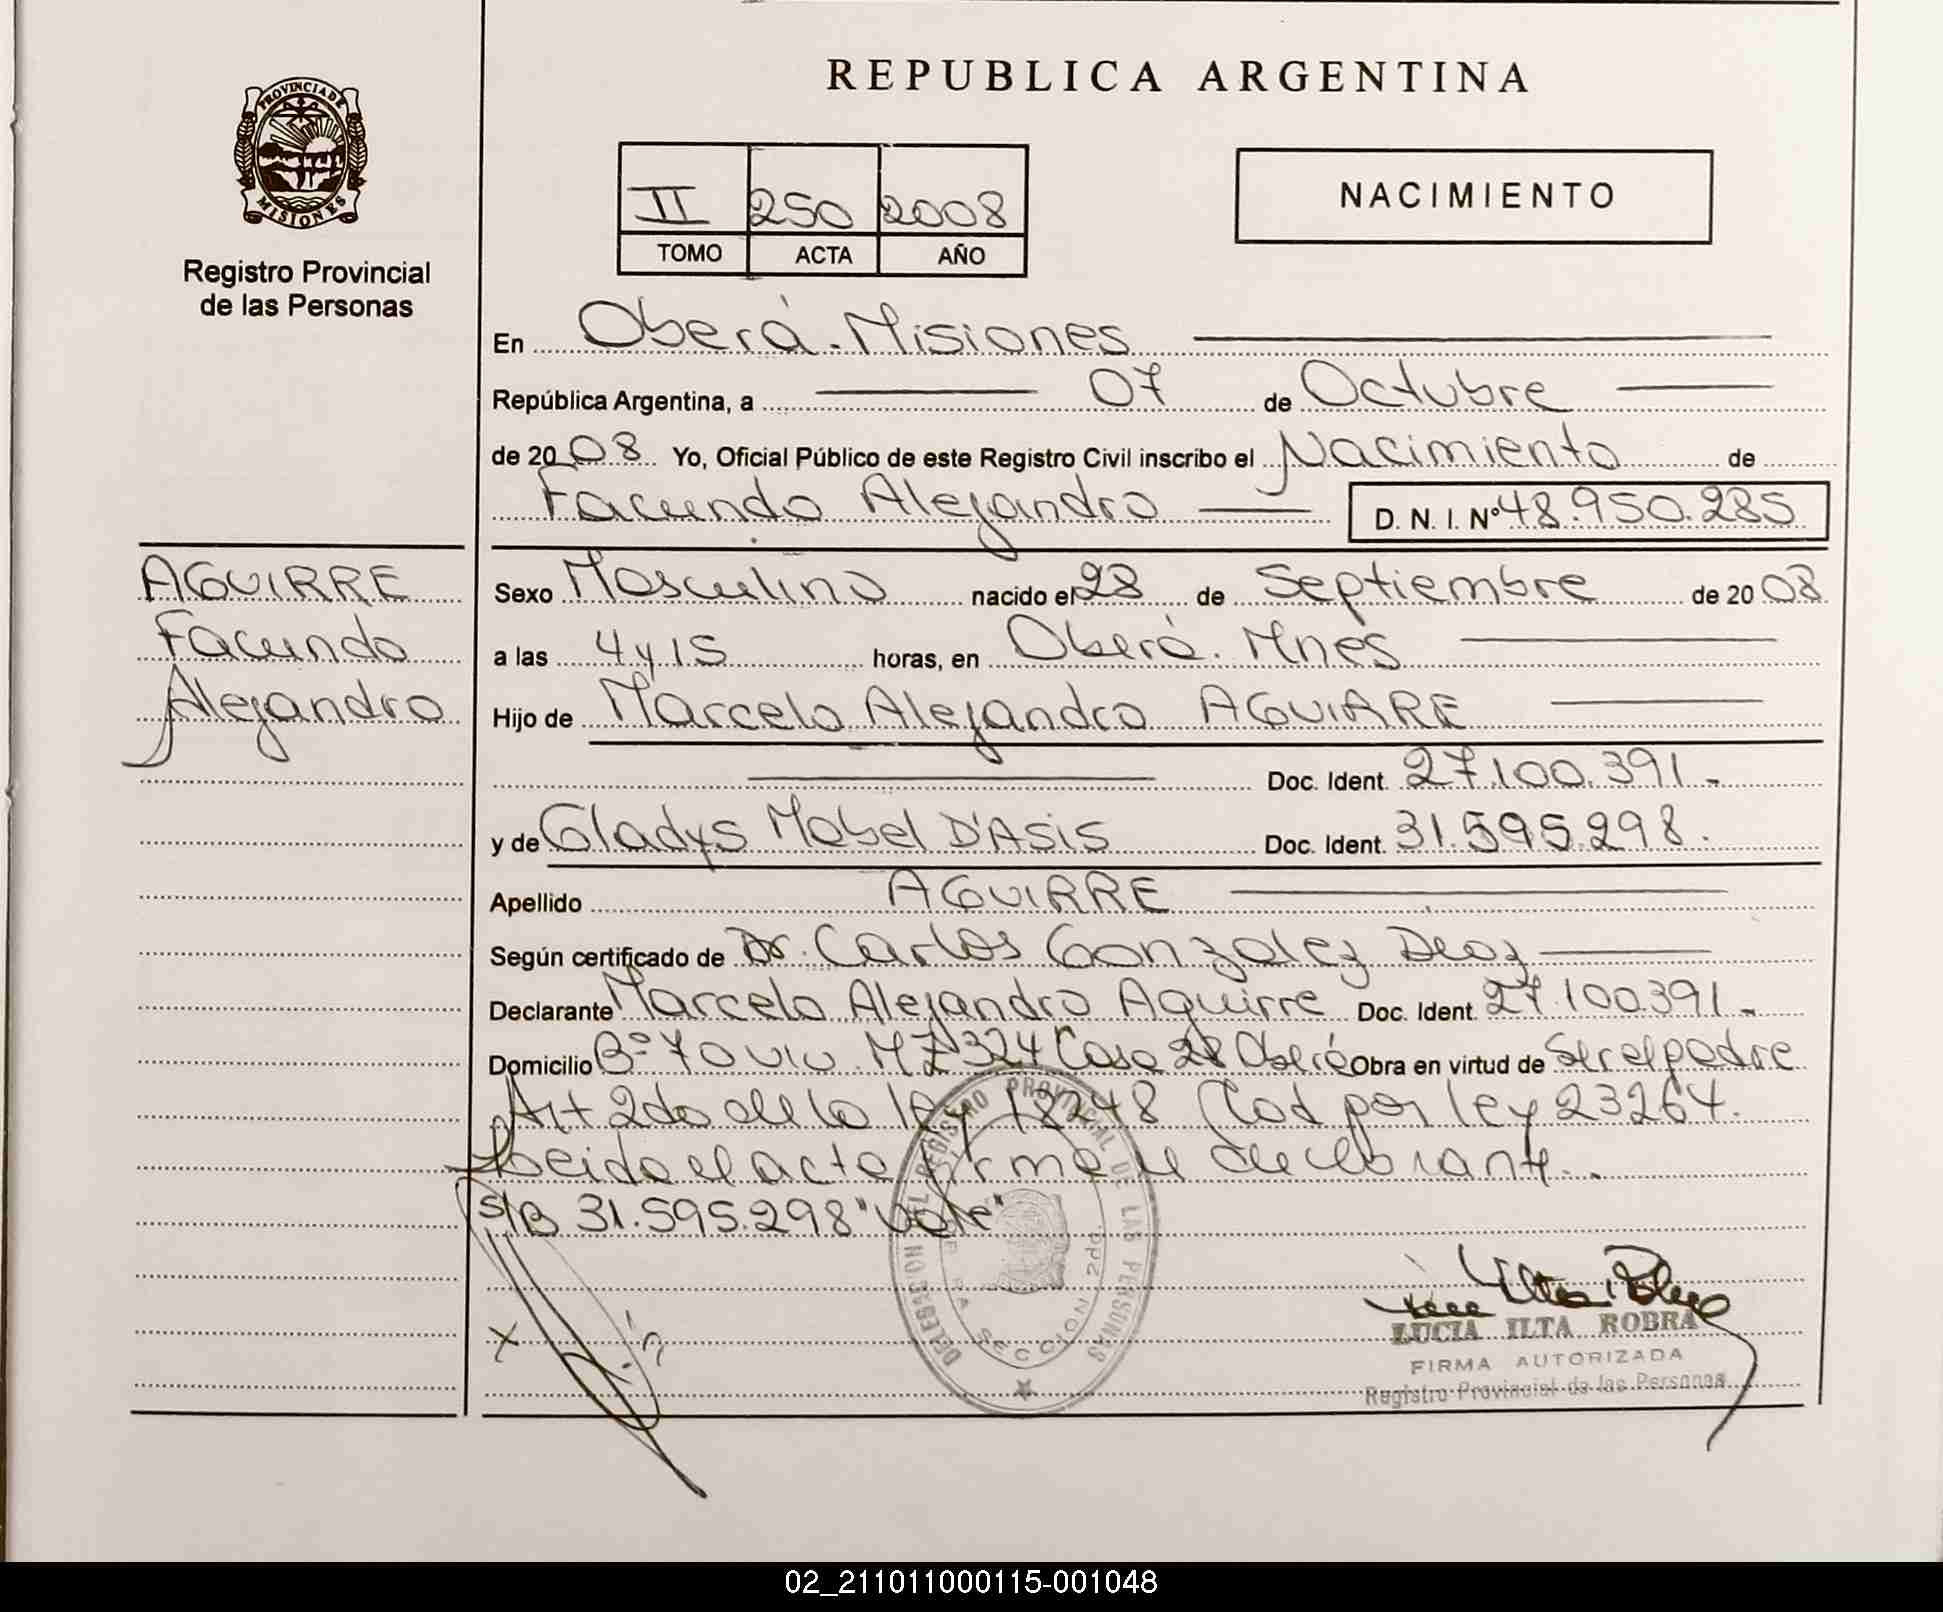 PROVINCIA DE
MISIONES
Registro Provincial
de las Personas
AGUIRRE
Facundo
Alejandro
REPUBLICA ARGENTINA
II 250 2008
TOMO ACTA AÑO
NACIMIENTO
En Oberá. Misiones
República Argentina, a 07 de Octubre
de 2008 Yo, Oficial Público de este Registro Civil inscribo el Nacimiento de
Facundo Alejandro D. N. I. Nº 48.950.285
Sexo Masculino nacido el 28 de Septiembre de 2008
a las 4 y 15 horas, en Oberá. Mnes
Hijo de Marcelo Alejandro AGUIRRE
Doc. Ident. 27.100.391.-
y de Gladys Mabel D'ASIS Doc. Ident. 31.595.298.
Apellido AGUIRRE
Según certificado de Dr. Carlos Gonzalez Diaz
Declarante Marcelo Alejandro Aguirre Doc. Ident. 27.100.391.-
Domicilio Bº 70 viv. MZ 324 Casa 28 Oberá Obra en virtud de Ser el padre
Art 2do de la ley 18248 Mod por ley 23264.
Leida el acta firma el declarante..
S/B 31.595.298 "Vale"
DELEGADO DEL REGISTRO PROVINCIAL DE LAS PERSONAS
SECCION 2da.
LUCIA ILTA ROBRA
FIRMA AUTORIZADA
Registro Provincial de las Personas
02_211011000115-001048